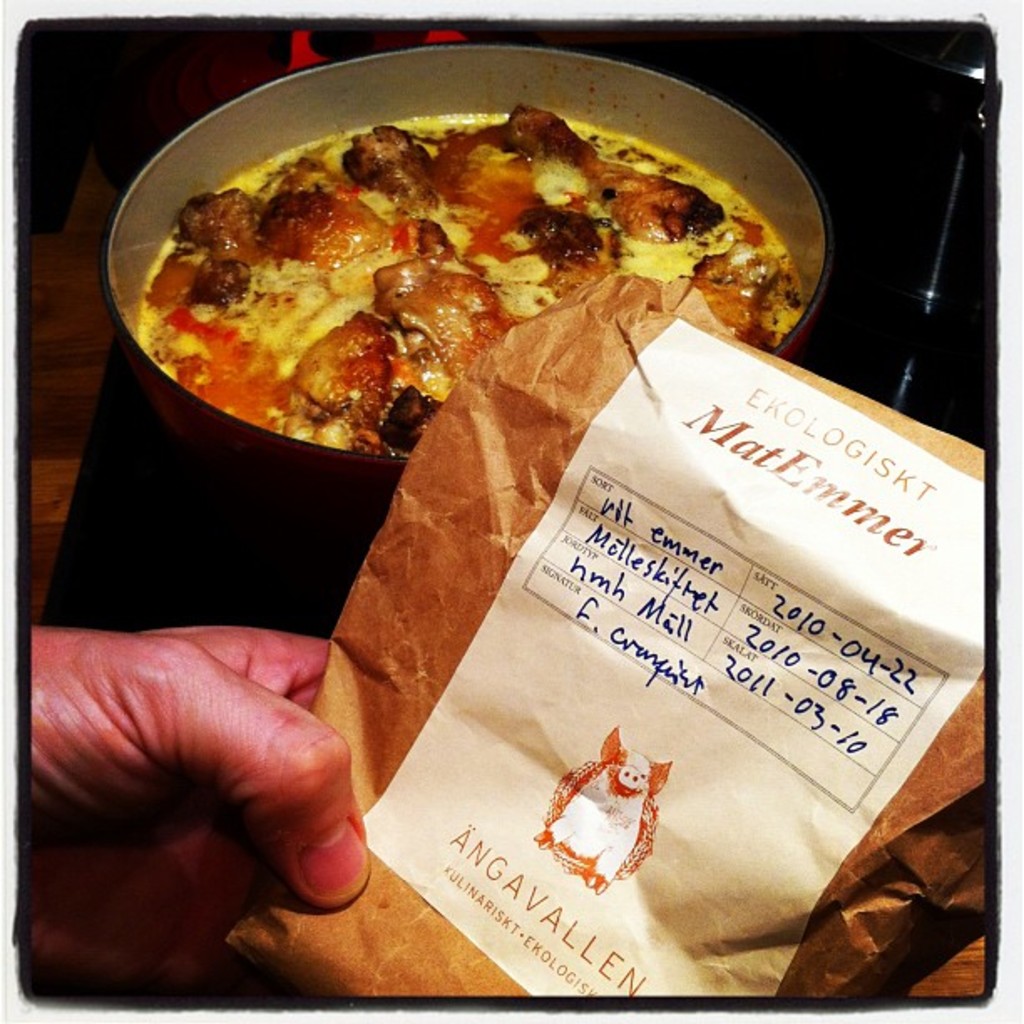 EKOLOGISKT
MatEmmer
SORT vit emmer SÅTT 2010-04-22
FÄLT Mölleskiftet SKÖRDAT 2010-08-18
JORDTYP nmh Mäll SKALAT 2011-03-10
SIGNATUR F. Cronqvist
ÄNGAVALLEN
KULINARISKT·EKOLOGISK